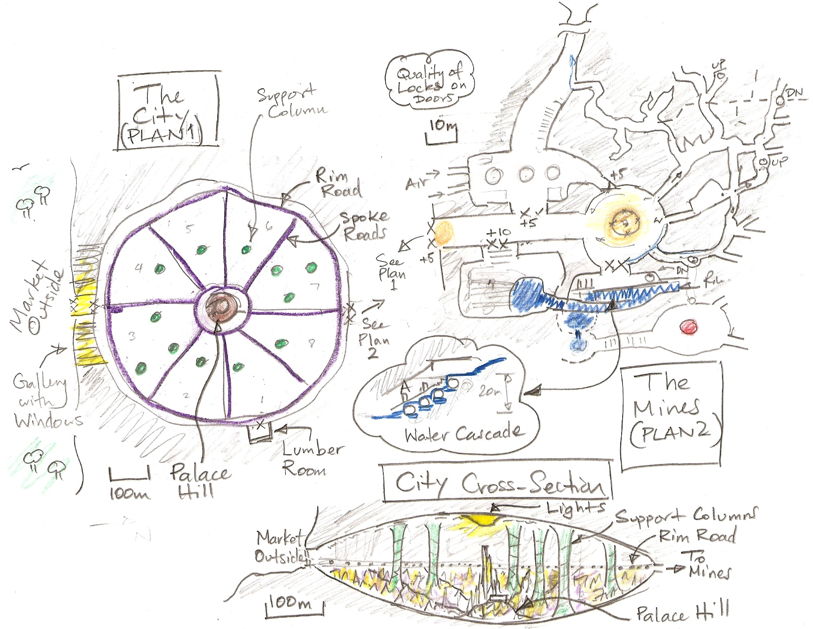 The
City
(PLAN 1)
Support
Column
Rim
Road
Spoke
Roads
5
6
4
7
3
8
2
1
Market
Outside
Gallery
with
Windows
100m
Palace
Hill
Lumber
Room
See
Plan
2
N
Quality of
Locks on
Doors
10m
UP
DN
UP
Air
+5
+5
+10
+5
See
Plan
1
DN
20m
Water Cascade
The
Mines
(PLAN 2)
City Cross-Section
Lights
Support Columns
Rim Road
To
Mines
Market
Outside
100m
Palace Hill